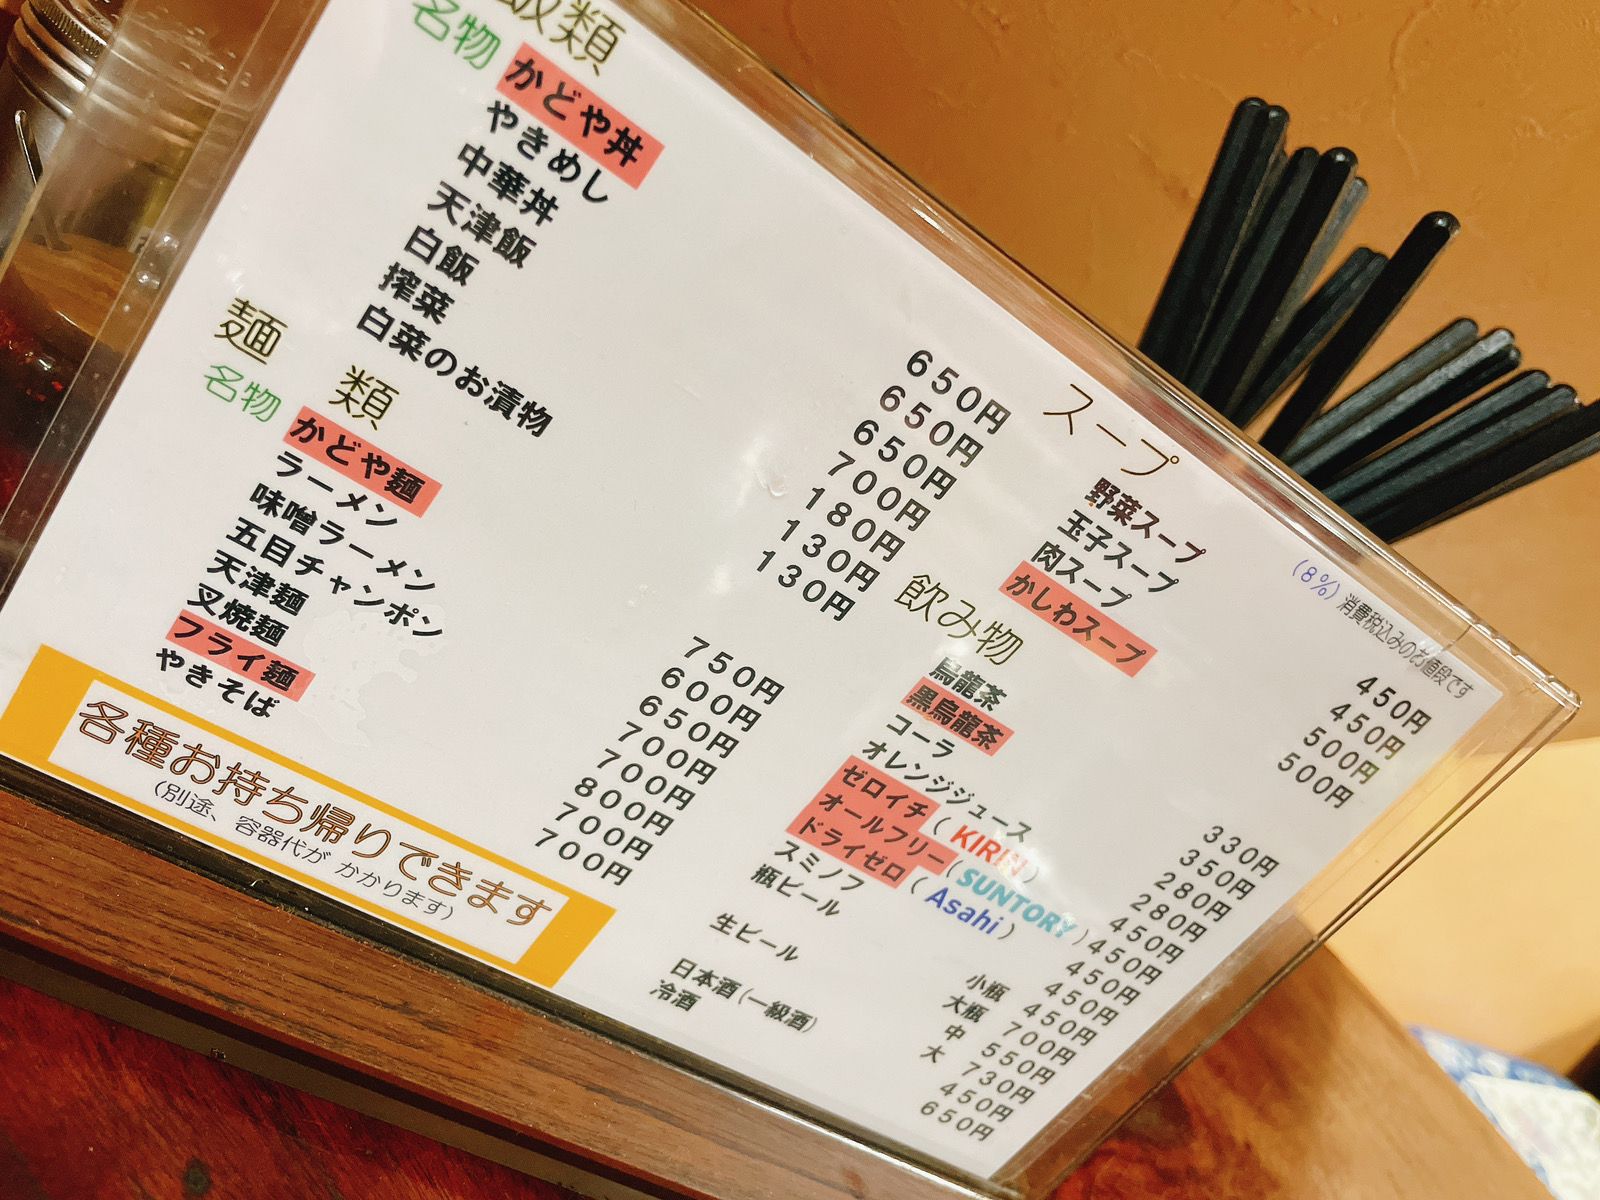 飯類
名物 かどや丼 650円
やきめし 650円
中華丼 650円
天津飯 700円
白飯 180円
搾菜 130円
白菜のお漬物 130円
麺 類
名物 かどや麺 750円
ラーメン 600円
味噌ラーメン 650円
五目チャンポン 700円
天津麺 700円
叉焼麺 800円
フライ麺 700円
やきそば 700円
各種お持ち帰りできます
(別途、容器代が かかります)
(8%) 消費税込みのお値段です
スープ
野菜スープ 450円
玉子スープ 450円
肉スープ 500円
かしわスープ 500円
飲み物
烏龍茶 330円
黒烏龍茶 350円
コーラ 280円
オレンジジュース 280円
ゼロイチ ( KIRIN ) 450円
オールフリー ( SUNTORY ) 450円
ドライゼロ ( Asahi ) 450円
スミノフ 450円
瓶ビール 小瓶 450円
大瓶 700円
生ビール 中 550円
大 730円
日本酒(一級酒) 450円
冷酒 650円